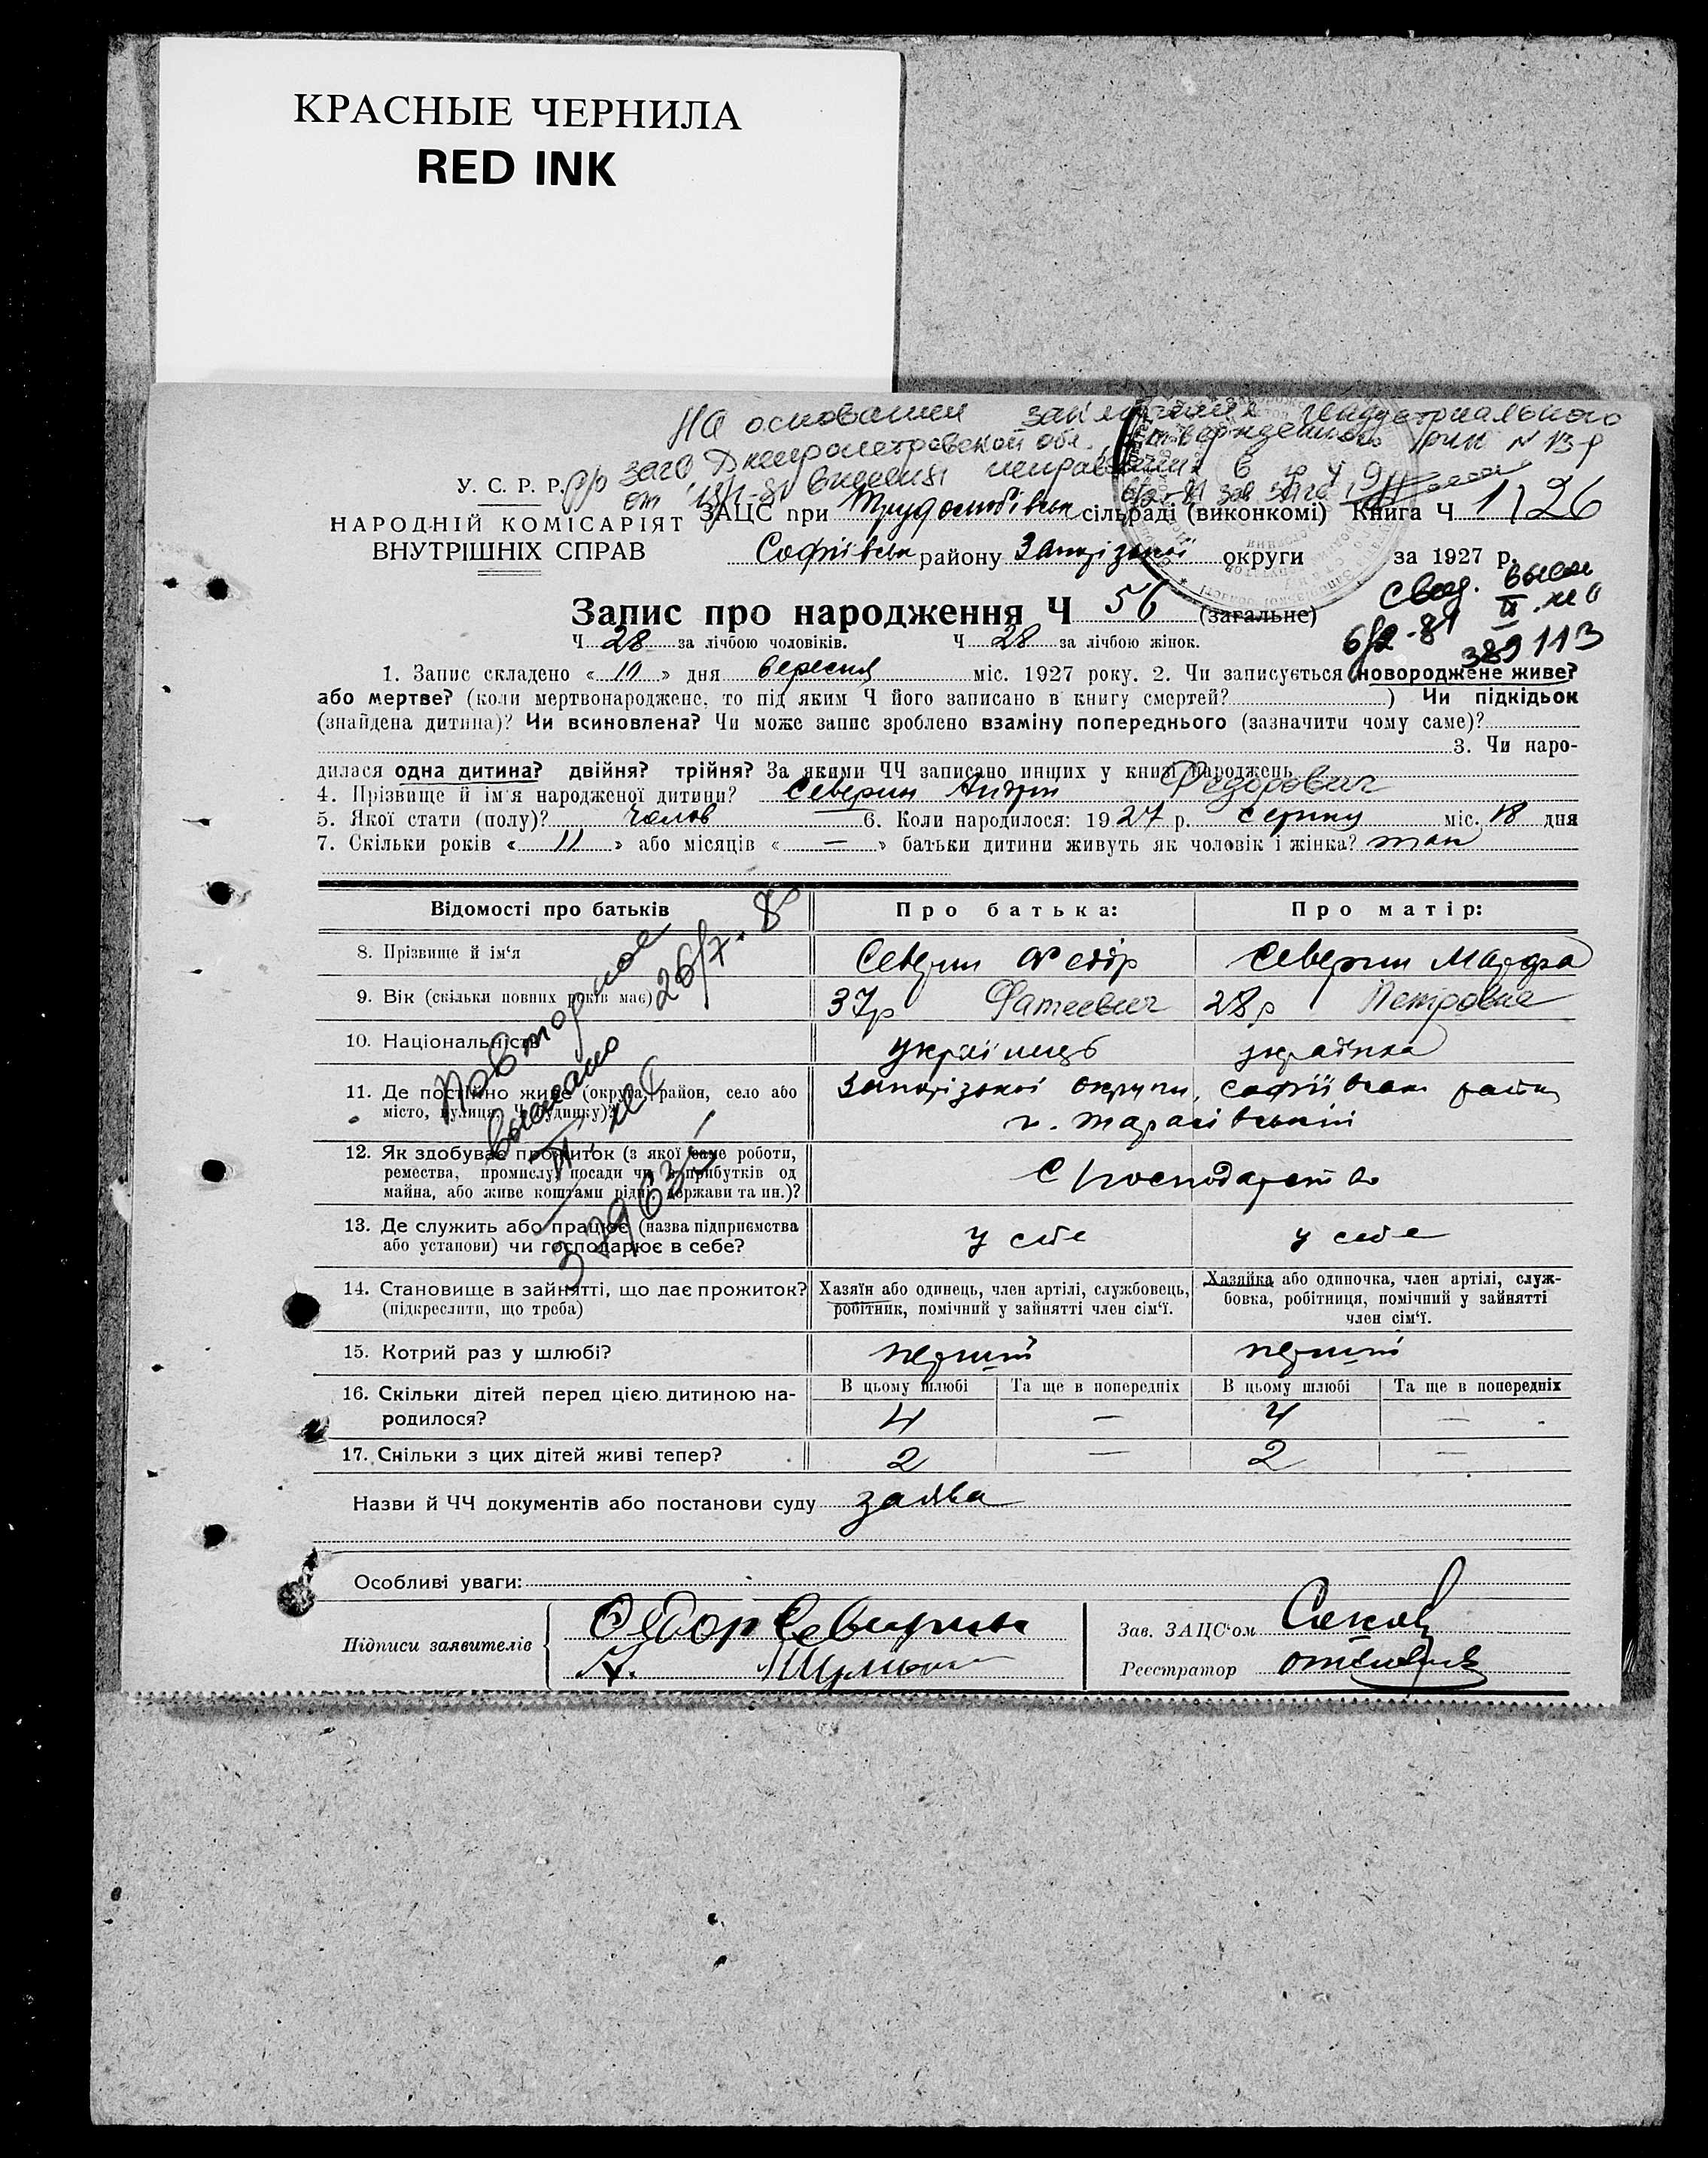 КРАСНЫЕ ЧЕРНИЛА
RED INK
На основании заключения Индустриального
р/о загс Днепропетровской обл. утвержденного РИК № 139
от внесены исправления в гр 4 9
У. С. Р. Р.
НАРОДНІЙ КОМІСАРІЯТ
ВНУТРІШНІХ СПРАВ
ЗАЦС при Трудолюбівськ сільраді (виконкомі) Книга Ч 1/26
Софіївськ району Запорізької округи за 1927 р.
Запис про народження Ч 56 (загальне)
свид. выслн
II
6/2-81 389113
Ч 28 за лічбою чоловіків. Ч 28 за лічбою жінок.
1. Запис складено « 10 » дня вересня міс. 1927 року. 2. Чи записується новороджене живе?
або мертве? (коли мертвонароджене, то під яким Ч його записано в книгу смертей? ) Чи підкідьок
(знайдена дитина)? Чи всиновлена? Чи може запис зроблено взаміну попереднього (зазначити чому саме)?
3. Чи наро-
дилася одна дитина? двійня? трійня? За якими ЧЧ записано инших у книзі народжень
4. Прізвище й ім'я народженої дитини? Северин Андрій Федорович
5. Якої стати (полу)? чолов 6. Коли народилося: 1927 р. серпня міс. 18 дня
7. Скільки років « 11 » або місяців « — » батьки дитини живуть як чоловік і жінка? так
Відомості про батьків Про батька: Про матір:
8. Прізвище й ім'я Северин Федір Северин Марфа
9. Вік (скільки повних років має) 37р Фатеевич 28р Петровна
10. Національність українець українка
11. Де постійно живе (округа, район, село або
місто, вулиця, Ч будинку)? Запорізької округи, Софіївськ район
12. Як здобуває прожиток (з якої саме роботи,
ремества, промислу, посади чи з прибутків од
майна, або живе коштами рідні, держави та ин.)? С господарство
13. Де служить або працює (назва підприємства
або установи) чи господарює в себе? у себе у себе
14. Становище в зайнятті, що дає прожиток?
(підкреслити, що треба)
Хазяїн або одинець, член артілі, службовець,
робітник, помічний у зайнятті член сім'ї.
Хазяйка або одиночка, член артілі, служ-
бовка, робітниця, помічний у зайнятті
член сім'ї.
15. Котрий раз у шлюбі? перший перший
16. Скільки дітей перед цією дитиною на-
родилося?
В цьому шлюбі Та ще в попередніх В цьому шлюбі Та ще в попередніх
4 — 4 —
17. Скільки з цих дітей живі тепер? 2 — 2 —
Повторное
выслано
26/7. 8
II
Назви й ЧЧ документів або постанови суду заява
Особливі уваги:
Підписи заявителів
Федор Северин
Зав. ЗАЦС'ом
Реєстратор